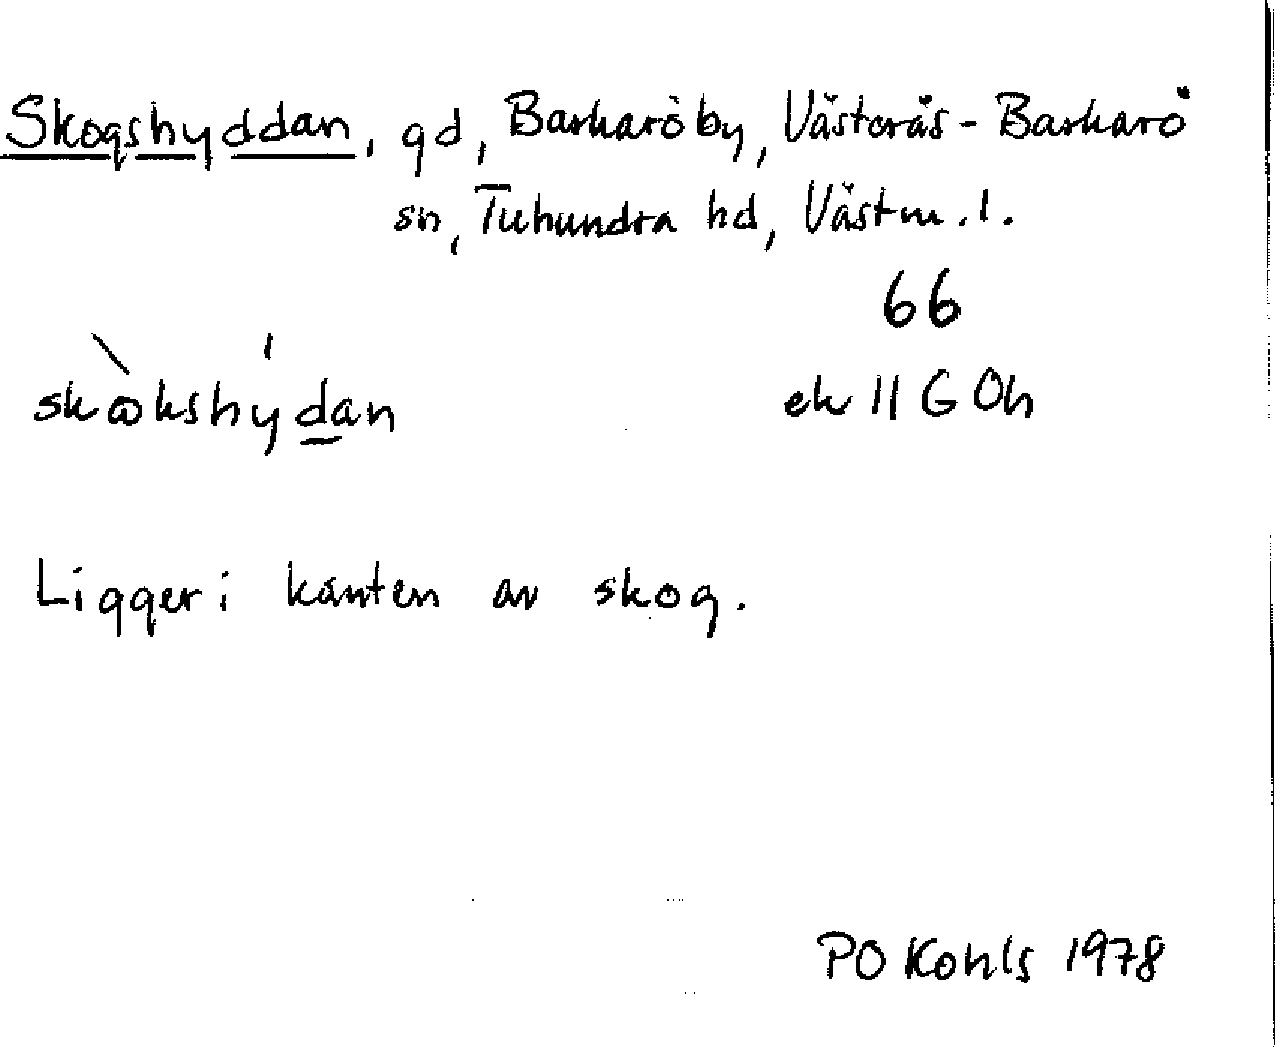 Skogshyddan, gd, Barkaröby, Västerås-Barkarö
sn, Tuhundra hd, Västm. l.
66
skɷ̀kshýdan
ek 11 G 0h
Ligger i kanten av skog.
PO Kohls 1978